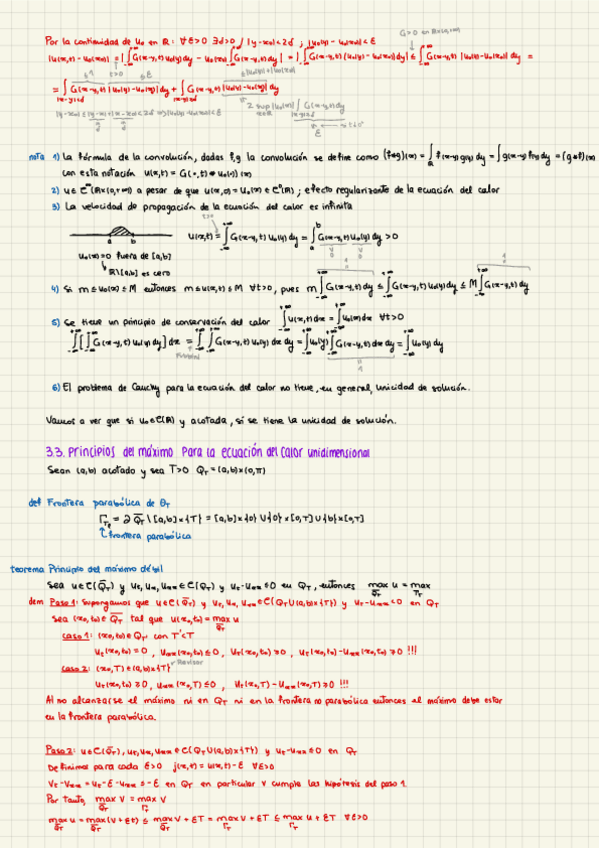 Por la continuidad de u₀ en ℝ: ∀ε>0 ∃δ>0 / |y-x₀|<2δ ; |u₀(y)-u₀(x₀)|<ε
G>0 en ℝx(0,+∞)
|u(x,t)-u₀(x₀)| = |∫G(x-y,t)u₀(y)dy - u₀(x₀)∫G(x-y,t)dy| = |∫G(x-y,t)(u₀(y)-u₀(x₀))dy| ≤ ∫G(x-y,t)|u₀(y)-u₀(x₀)|dy =
= ∫G(x-y,t)|u₀(y)-u₀(x₀)|dy + ∫G(x-y,t)|u₀(y)-u₀(x₀)|dy
nota 1) La fórmula de la convolución, dadas f,g la convolución se define como (f*g)(x) = ∫f(x-y)g(y)dy = ∫g(x-y)f(y)dy = (g*f)(x)
con esta notación u(x,t) = G(·,t)*u₀(·)(x)
2) u∈C^∞(ℝx(0,+∞)) a pesar de que u(x,0)=u₀(x)∈C⁰(ℝ); efecto regularizante de la ecuación del calor
3) La velocidad de propagación de la ecuación del calor es infinita
t>0
a b
u(x,t) = ∫G(x-y,t)u₀(y)dy = ∫G(x-y,t)u₀(y)dy > 0
u₀(x)=0 fuera de [a,b]
ℝ\[a,b] es cero
4) Si m≤u₀(x)≤M entonces m≤u(x,t)≤M ∀t>0, pues m∫G(x-y,t)dy ≤ ∫G(x-y,t)u₀(y)dy ≤ M∫G(x-y,t)dy
5) Se tiene un principio de conservación del calor ∫u(x,t)dx = ∫u₀(x)dx ∀t>0
∫[∫G(x-y,t)u₀(y)dy]dx = ∫∫G(x-y,t)u₀(y)dx dy = ∫u₀(y)∫G(x-y,t)dx dy = ∫u₀(y)dy
Fubini
6) El problema de Cauchy para la ecuación del calor no tiene, en general, unicidad de solución.
Vamos a ver que si u₀∈C(ℝ) y acotada, sí se tiene la unicidad de solución.
3.3. Principios del máximo para la ecuación del calor unidimensional
Sean (a,b) acotado y sea T>0 Q_T=(a,b)x(0,T)
def Frontera parabólica de Q_T
Γ_T = ∂Q_T\[a,b]x{T} = [a,b]x{0}∪{a}x[0,T]∪{b}x[0,T]
frontera parabólica
teorema Principio del máximo débil
Sea u∈C(Q̄_T) y u_t, u_x, u_xx∈C(Q_T) y u_t-u_xx≤0 en Q_T, entonces max u = max
dem Paso 1: Supongamos que u∈C(Q̄_T) y u_t, u_x, u_xx∈C(Q_T∪(a,b)x{T}) y u_t-u_xx<0 en Q_T
Sea (x₀,t₀)∈Q̄_T tal que u(x₀,t₀)=max u
caso 1: (x₀,t₀)∈Q_T' con T'<T
u_t(x₀,t₀)=0, u_xx(x₀,t₀)≤0, u_t(x₀,t₀)-u_xx(x₀,t₀)≥0 !!!
Revisar
caso 2: (x₀,T)∈(a,b)x{T}
u_t(x₀,t₀)≥0, u_xx(x₀,T)≤0, u_t(x₀,T)-u_xx(x₀,T)≥0 !!!
Al no alcanzarse el máximo ni en Q_T ni en la frontera no parabólica entonces el máximo debe estar
en la frontera parabólica.
Paso 2: u∈C(Q̄_T), u_t, u_x, u_xx∈C(Q_T∪(a,b)x{T}) y u_t-u_xx≤0 en Q_T
Definimos para cada ε>0
V_t-V_xx = u_t-ε-u_xx ≤ -ε en Q_T en particular v cumple las hipótesis del paso 1.
Por tanto, max V = max V
max u = max(V+εt) ≤ max V + εT = max V + εT ≤ max u + εT ∀ε>0